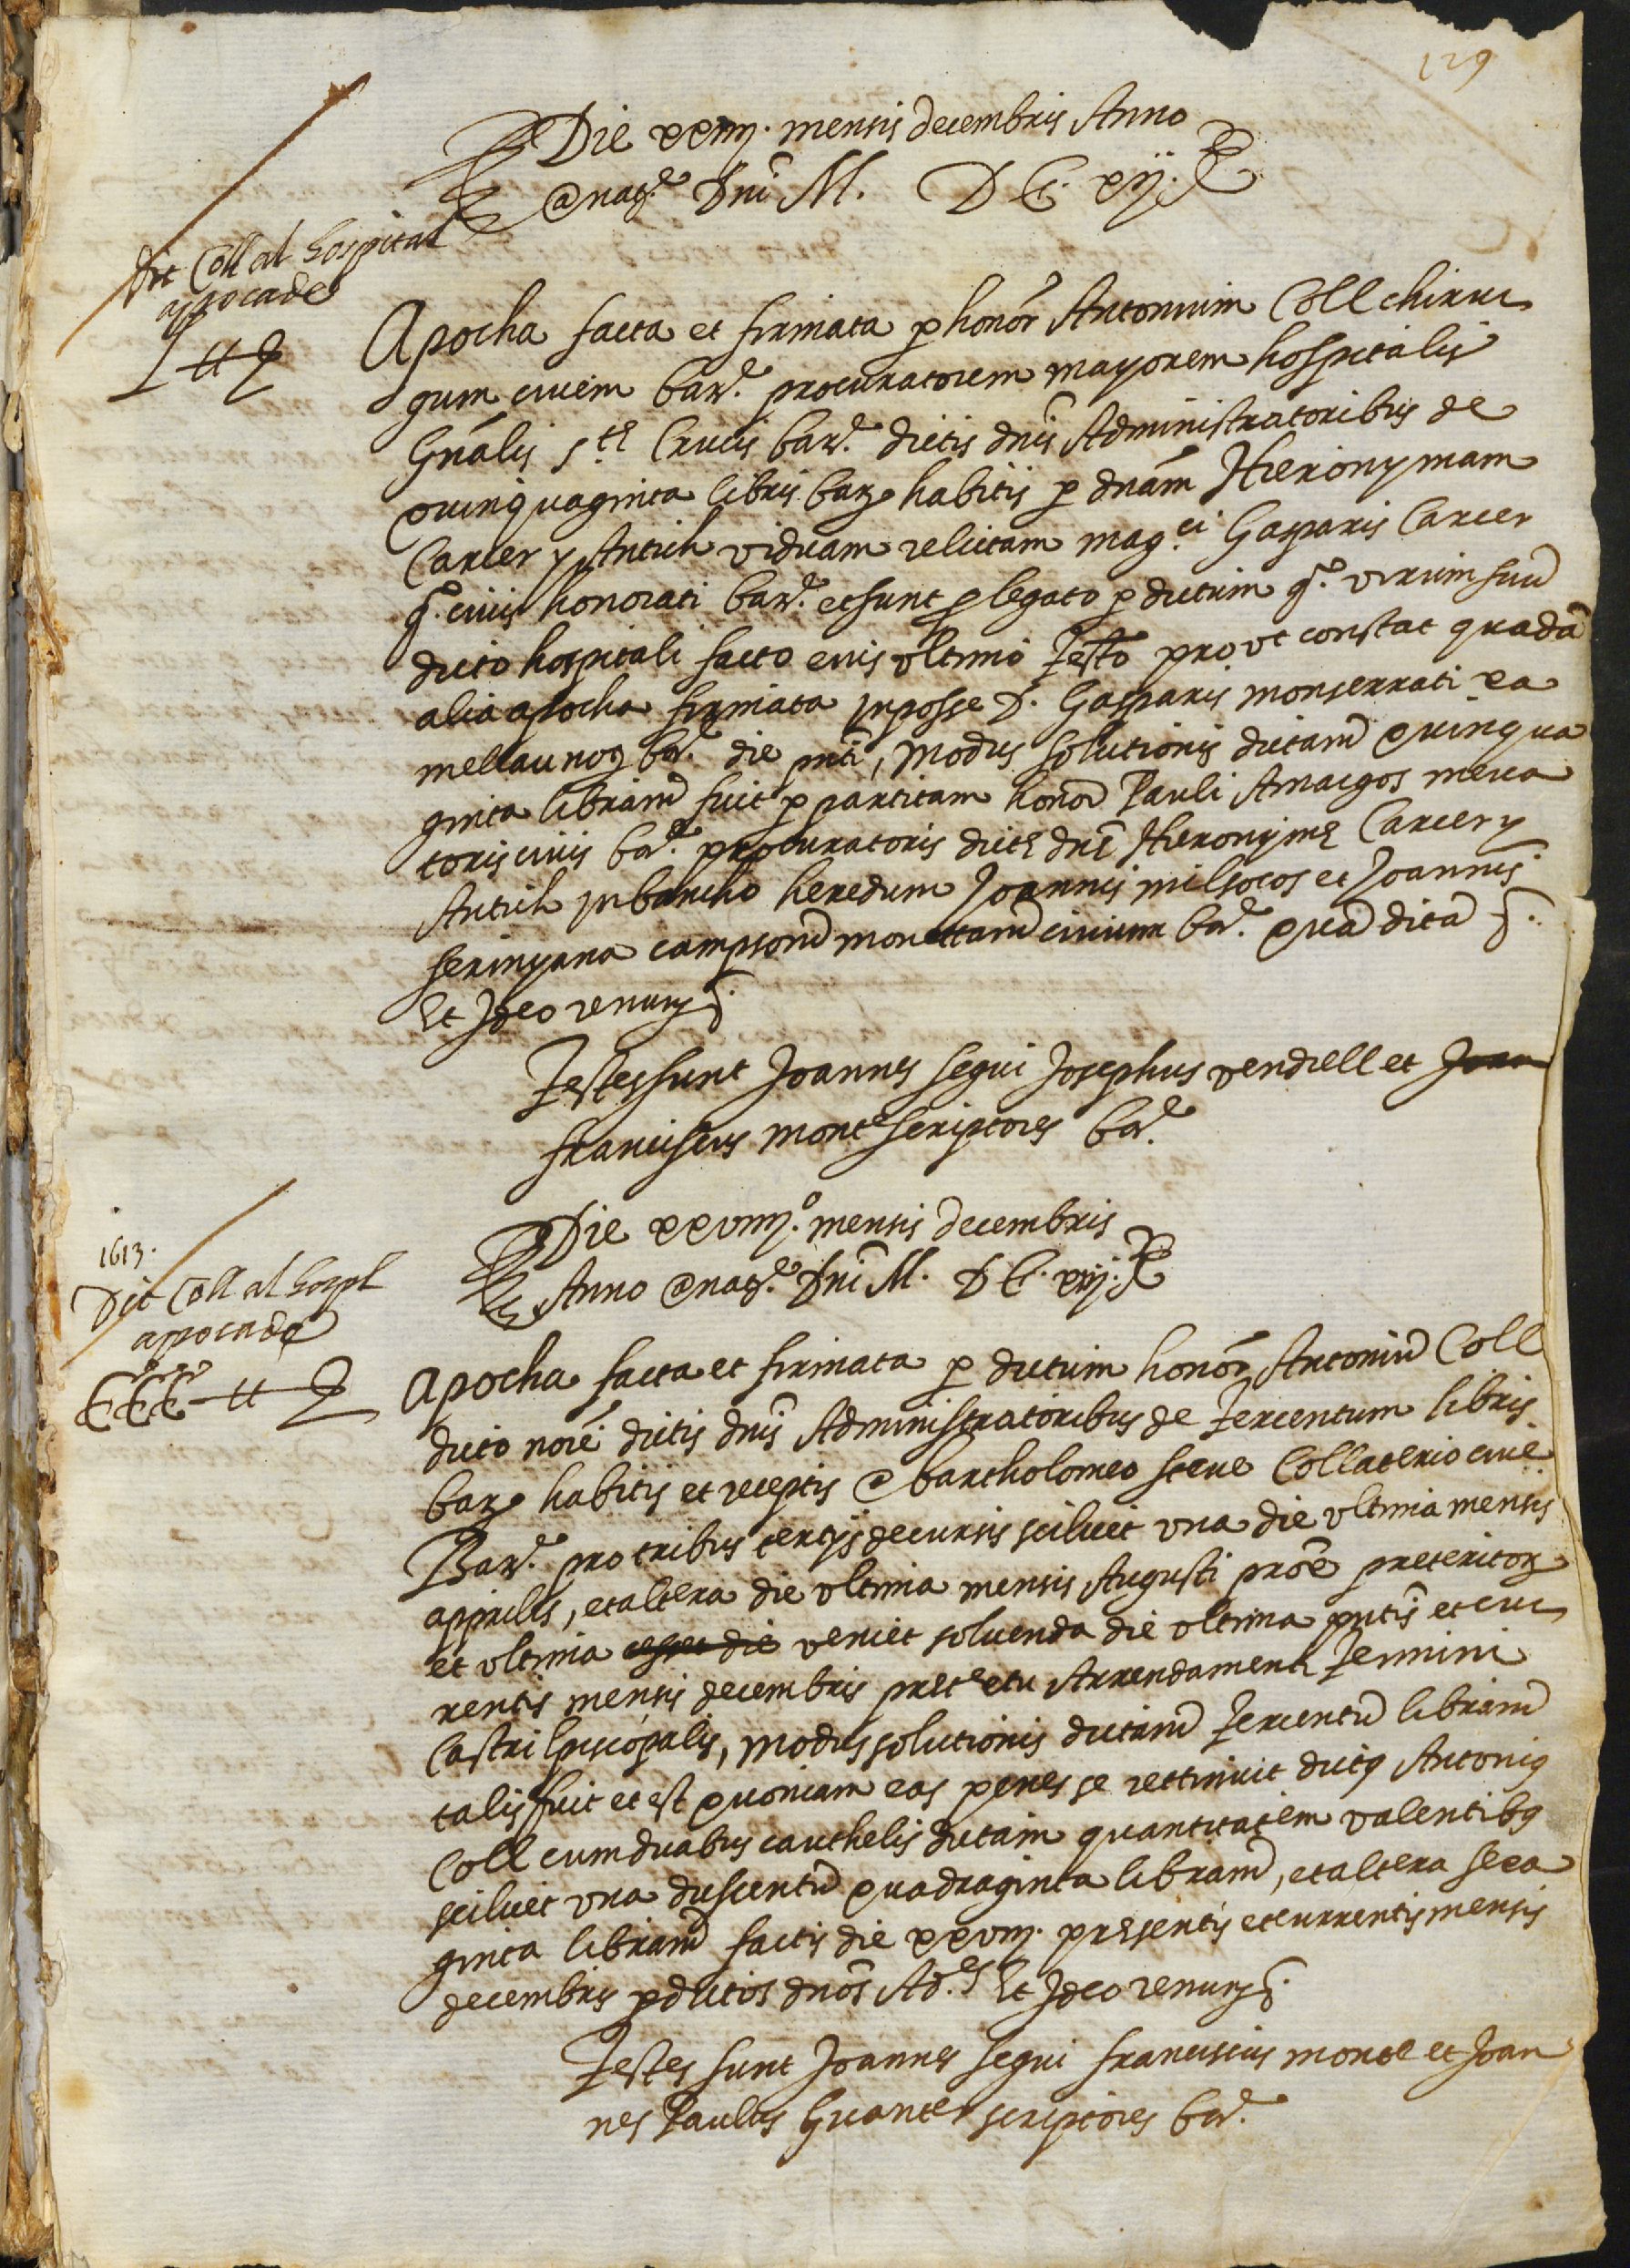 129
Die xxiiij. mensis decembris Anno
a natᵉ. Dni M. D C. xij.
Dit Coll al hospital
apoca de
L ₶
Apocha facta et firmata p honor Antonium Coll chirur
gum civem barᵉ. procuratorem mayorem hospitalis
Gñalis stᵉ Crucis barᵉ. dictis dnis Administratoribus de
quinquaginta libris barᵉ habitis p dnam Hieronymam
Carcer y Antich viduam relictam magᶜⁱ Gasparis Carcer
qº. civis honorati barᵉ. et sunt p legato p dictum qº. virum suũ
dicto hospitali facto eius vltimo testo prout constat quadã
alia apocha firmata in posse D. Gasparis monserrati xa
mellau noȝ barᵉ. die pnti, Modus solutionis dictarũ quinqua
ginta librarũ fuit p partitam honorᵉ Pauli Amargos merca
toris civis barᵉ. procuratoris dictę dnę Hieronymę Carcer y
Antich in bancho heredum Joannis milsocos et Joannis
serinyana campsorũ monettarũ civium barᵉ. quã dictã
Et Ideo renun
Testes sunt Joannes segui Josephus vendrell et Joan
franciscus monte scriptores barᵉ.
Die xxviiijº. mensis decembris
Anno a natᵉ. Dni M. D C. xiij.
1613.
Dit Coll al hospl
apoca de
CCC ₶
Apocha facta et firmata p dictum honor Antoniũ Coll
dicto noie dictis dnis Administratoribus de Tercentum libris
barᵉ habitis et receptis a bartholomeo steve Collaterio cive
Barᵉ. pro tribus tertijs decursis scilicet vna die vltima mensis
apprilis, et altera die vltima mensis Augusti proxe preteritoȝ
et vltima veniet soluenda die vltima pntis et cur
rentis mensis decembris pretextu Arrendamenti Termini
Castri Episcopalis, modus solutionis dictarũ Tercentũ librarũ
talis fuit et est quoniam eas penes se rettinuit dictꝰ Antoniꝰ
Coll cum duabus cauthelis dictam quantitatem valentibꝰ
scilicet vna duscentũ quadraginta librarũ, et altera sexa
ginta librarũ factis die xxviij. presentis et currentis mensis
decembris p dictos dnos Adᵉˢ Et Ideo renun
Testes sunt Joannes segui franciscus monte et Joan
nes Paulus Guanter scriptores barᵉ.